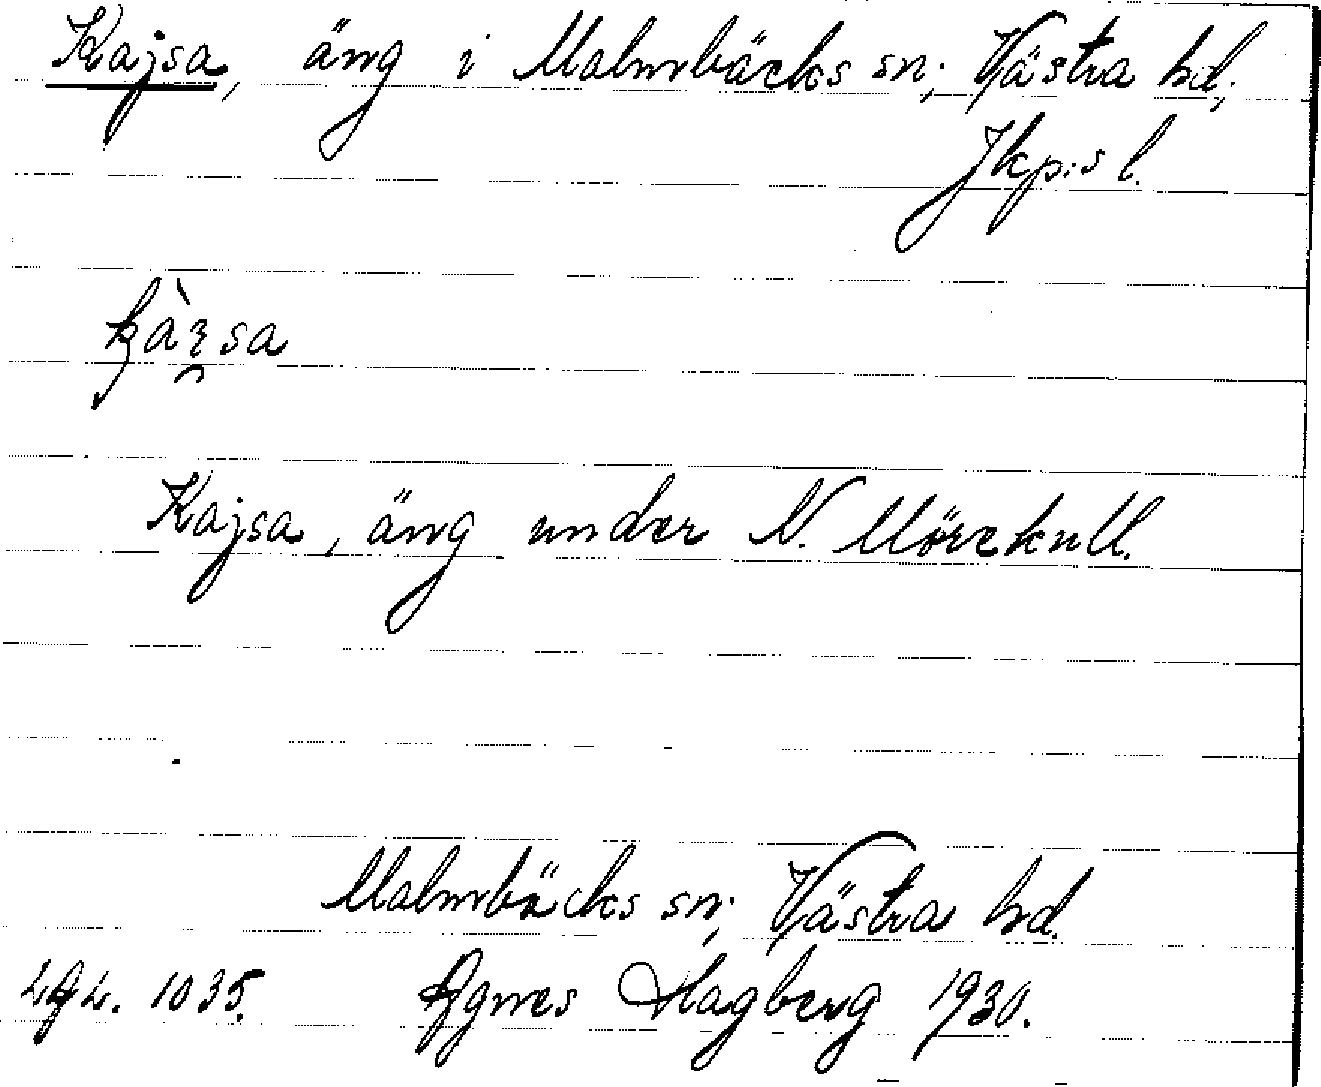 Kajsa, äng i Malmbäcks sn; Västra hd;
Jkp:s l.
kàɛ̯sa
Kajsa, äng under N. Mörekull.
Malmbäcks sn; Västra hd.
Agnes Hagberg 1930.
1035.